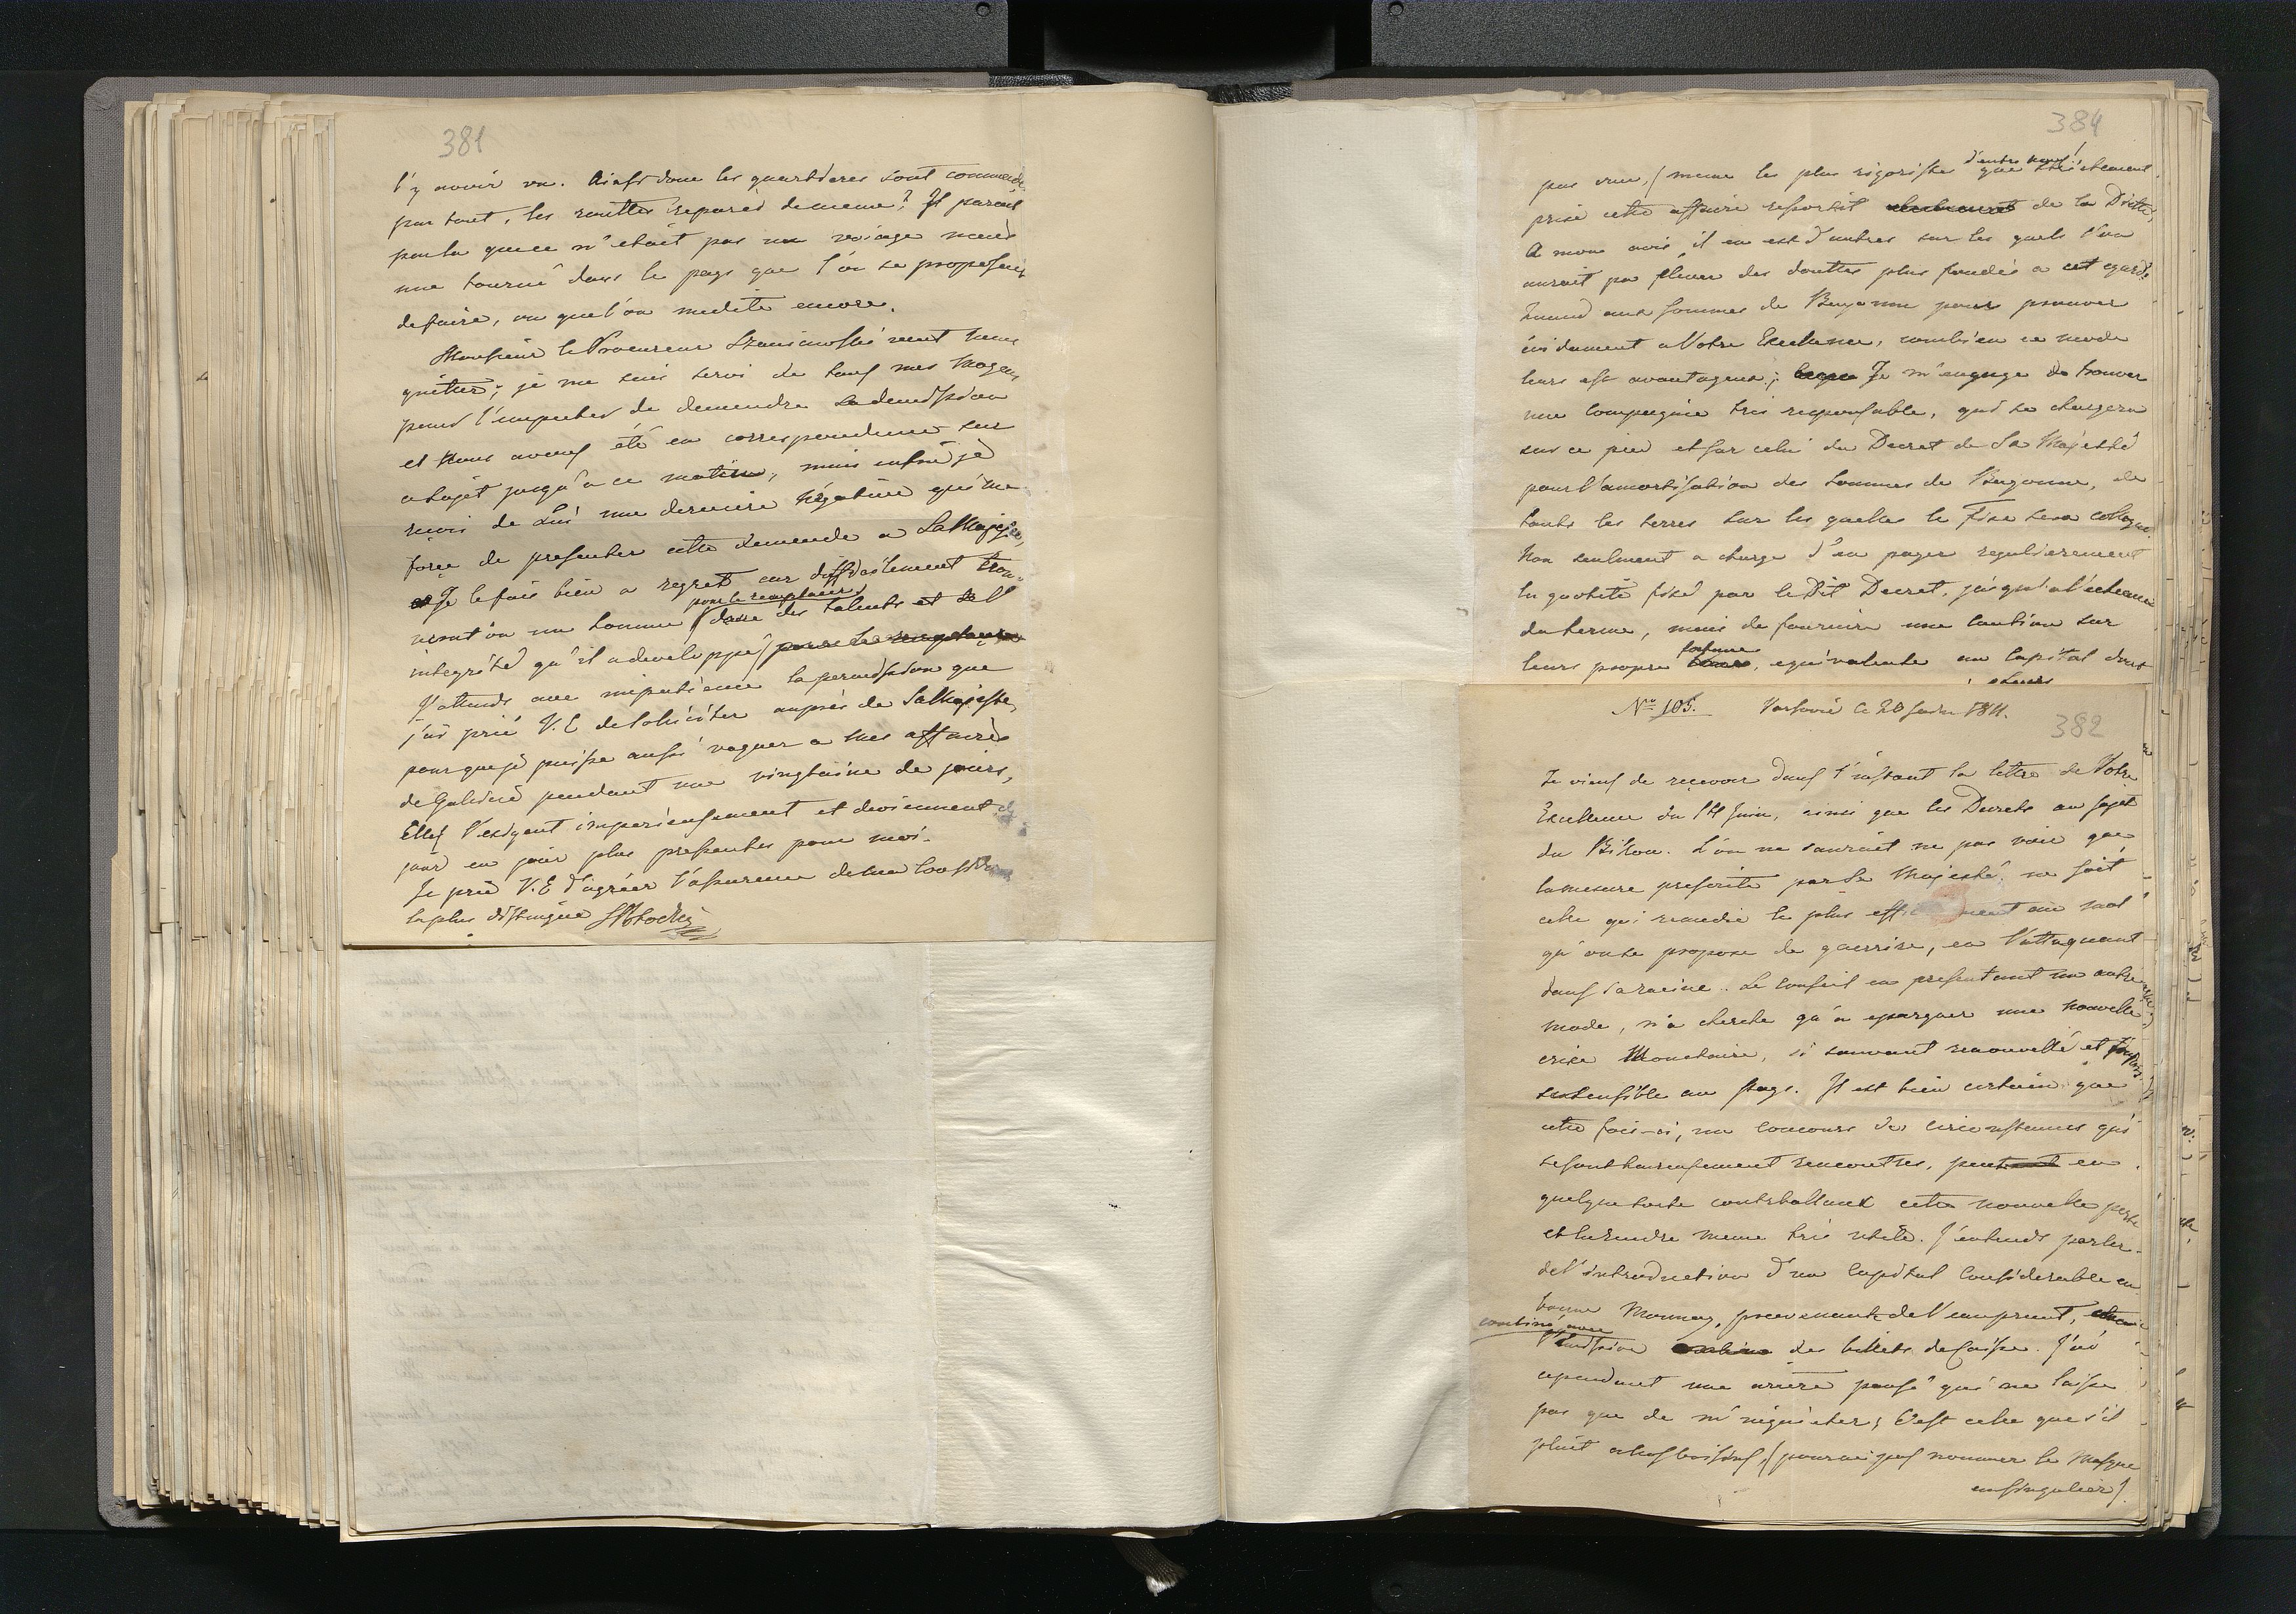 381
l'y avoir vu. Ainsi donc les quartieres sont commendé
par tout, les routtes reparés de meme? Il parait
par la que ce n'etait pas un voiage mais
une tourné dans le pays que l'on se proposait
de faire, ou que l'on medite encore.
Monsieur le Procureur Szaniawski veut nous
quitter; je me suis servi de tous mes moyens
pour l'empecher de demender sa demission
et nous avons été en correspondence sur
ce sujet jusqu'a ce matin, mais enfin je
reçois de Lui une derniere négative qui me
force de presenter cette demende a Sa Majesté,
Je le fais bien a regret car difficilement trou-
pour le remplacer
verat'on un homme doué des talents et de l'
integrité qu'il a developpé
J'attends avec impatience la permission que
j'ai prié V. E de soliciter auprès de Sa Majesté,
pour que je puisse aussi vaquer a mes affaires
de Galicie pendant une vingtaine de jours,
Elles l'exigent imperieusement et deviennent de
jour en jour plus pressantes pour moi.
Je prie V. E d'agréer l'assurence de ma
la plus distinguée
384
d'entre nous)
pas cru, (meme le plus rigoriste que strictement
prise cette affaire ressortit de la Diette,
A mon avis, il en est d'autres sur les quels l'on
aurait pu elever des douttes plus fondés a cet egard.
Quand aux sommes de Bayonne pour prouver
évidament a Votre Excellence, combien ce mode
leurs est avantageux; Je m'engage de trouver
une Compagnie très responsable, qui se chargera
sur ce pied et sur celui du Decret de Sa Majesté
pour l'amortisation des sommes de Bayonne, de
touts les terres sur les quelles le Fisc sera
Non seulment a charge d'en payer regulierement
la quotité fixé par le Dit Decret, jusqu'a l'echeance
du terme, mais de fournir une Caution sur
fortune
leurs propre equivalente au Capital dont
No 105. Varsovie ce 20 Juin 1811.
382
Je viens de reçevoir dans l'instant la lettre de Votre
Excellence du 14 Juin, ainsi que les Decrets au sujet
du Billon. L'on ne saurait ne pas voir que
la mesure prescrite par Sa Majesté, ne soit
celle qui remedie le plus au mal
qu'on se propose de guerrire, en l'attaquant
dans sa racine. Le Conseil en presentant un autre
mode, n'a cherché qu'a eparguer une nouvelle
crise Monetaire, si souvant renouvellé et
sensible au pays. Il est bien certain que
cette fois-ci, un concours des circonstances qui
se sont heureusement rencontrés, peut en
quelque sorte contreballancé cette nouvelle perte
et la rendre meme très utile. J'entends parler
de l'introduction d'un Capital considerable en
bonne Monnay, provenante de l'emprunt,
combiné avec
l'emission des billets de Caisse. J'ai
cependant une arriere pensé qui ne laisse
pas que de m'inquieter; C'est celle que s'il
plait a nos voisins, (pour ne pas nommer le Masque
en singulier)